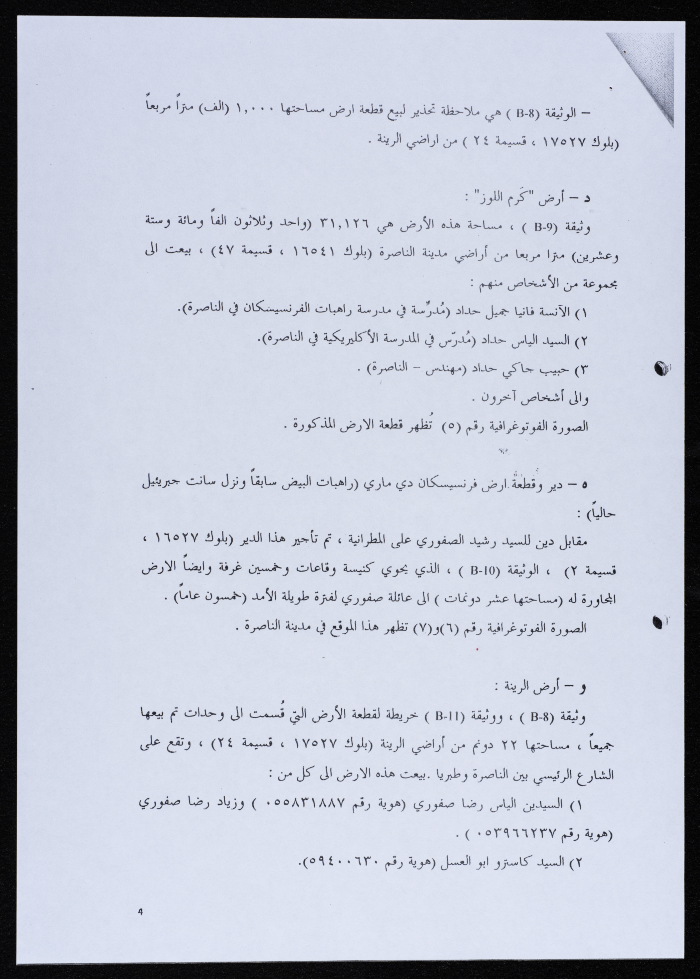 – الوثيقة (B-8 ) هي ملاحظة تحذير لبيع قطعة ارض مساحتها ١,٠٠٠ (الف) متراً مربعاً
(بلوك ١٧٥٢٧ ، قسيمة ٢٤ ) من اراضي الرينة .
د – أرض "كَرم اللوز" :
وثيقة (B-9 ) ، مساحة هذه الأرض هي ٣١,١٢٦ (واحد وثلاثون الفاً ومائة وستة
وعشرين) مترا مربعا من أراضي مدينة الناصرة (بلوك ١٦٥٤١ ، قسيمة ٤٧) ، بيعت الى
مجموعة من الأشخاص منهم :
١) الآنسة فانيا جميل حداد (مُدرِّسة في مدرسة راهبات الفرنسيسكان في الناصرة).
٢) السيد الياس حداد (مُدرّس في المدرسة الأكليريكية في الناصرة).
٣) حبيب جاكي حداد (مهندس – الناصرة) .
والى أشخاص آخرون .
الصورة الفوتوغرافية رقم (٥) تُظهر قطعة الارض المذكورة .
٥ – دير وقطعة ارض فرنسيسكان دي ماري (راهبات البيض سابقاً ونزل سانت جبريئيل
حالياً) :
مقابل دين للسيد رشيد الصفوري على المطرانية ، تم تأجير هذا الدير (بلوك ١٦٥٢٧ ،
قسيمة ٢) ، الوثيقة (B-10 ) ، الذي يحوي كنيسة وقاعات وخمسين غرفة وايضاً الارض
المجاورة له (مساحتها عشر دونمات ) الى عائلة صفوري لفترة طويلة الأمد (خمسون عاماً) .
الصورة الفوتوغرافية رقم (٦)و(٧) تظهر هذا الموقع في مدينة الناصرة .
و – أرض الرينة :
وثيقة (B-8 ) ، ووثيقة (B-11 ) خريطة لقطعة الأرض التي قُسمت الى وحدات تم بيعها
جميعاً ، مساحتها ٢٢ دونم من أراضي الرينة (بلوك ١٧٥٢٧ ، قسيمة ٢٤) ، وتقع على
الشارع الرئيسي بين الناصرة وطبريا .بيعت هذه الارض الى كل من :
١) السيدين الياس رضا صفوري (هوية رقم ٠٥٥٨٣١٨٨٧ ) وزياد رضا صفوري
(هوية رقم ٠٥٣٩٦٦٢٣٧ ) .
٢) السيد كاسترو ابو العسل (هوية رقم ٥٩٤٠٠٦٣٠).
4